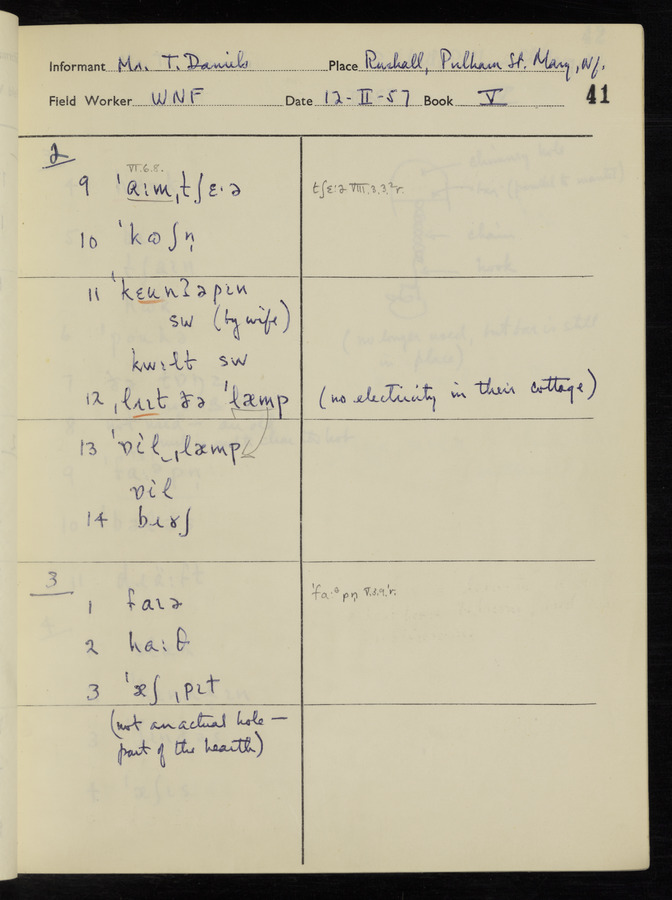 Informant Mr. T. Daniels Place Rushall, Pulham St. Mary, Nf.
Field Worker WNF Date 12-II-57 Book V 41
2
VI.6.8.
9 ˈɑːmˌtʃɛ·ə tʃɛːə VIII.3.3.²r.
10 ˈkʊʃn̩
11 ˈkɛʊnʔəpɪn
sw (by wife)
kwɪlt sw
12 ˌlɪɪt ðə ˈlæmp (no electricity in their cottage)
13 ˈɒɪl ˌlæmp
ɒɪl
14 bɪɤʃ
3
1 faɪə
2 haːθ
3 ˈæʃ ˌpɪt
(not an actual hole —
part of the hearth)